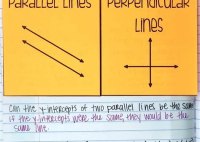 PARALLEL LINES
PERPENDICULAR
LINES
Can the y-intercepts of two parallel lines be the same
if the y-intercepts were the same, they would be the
same line